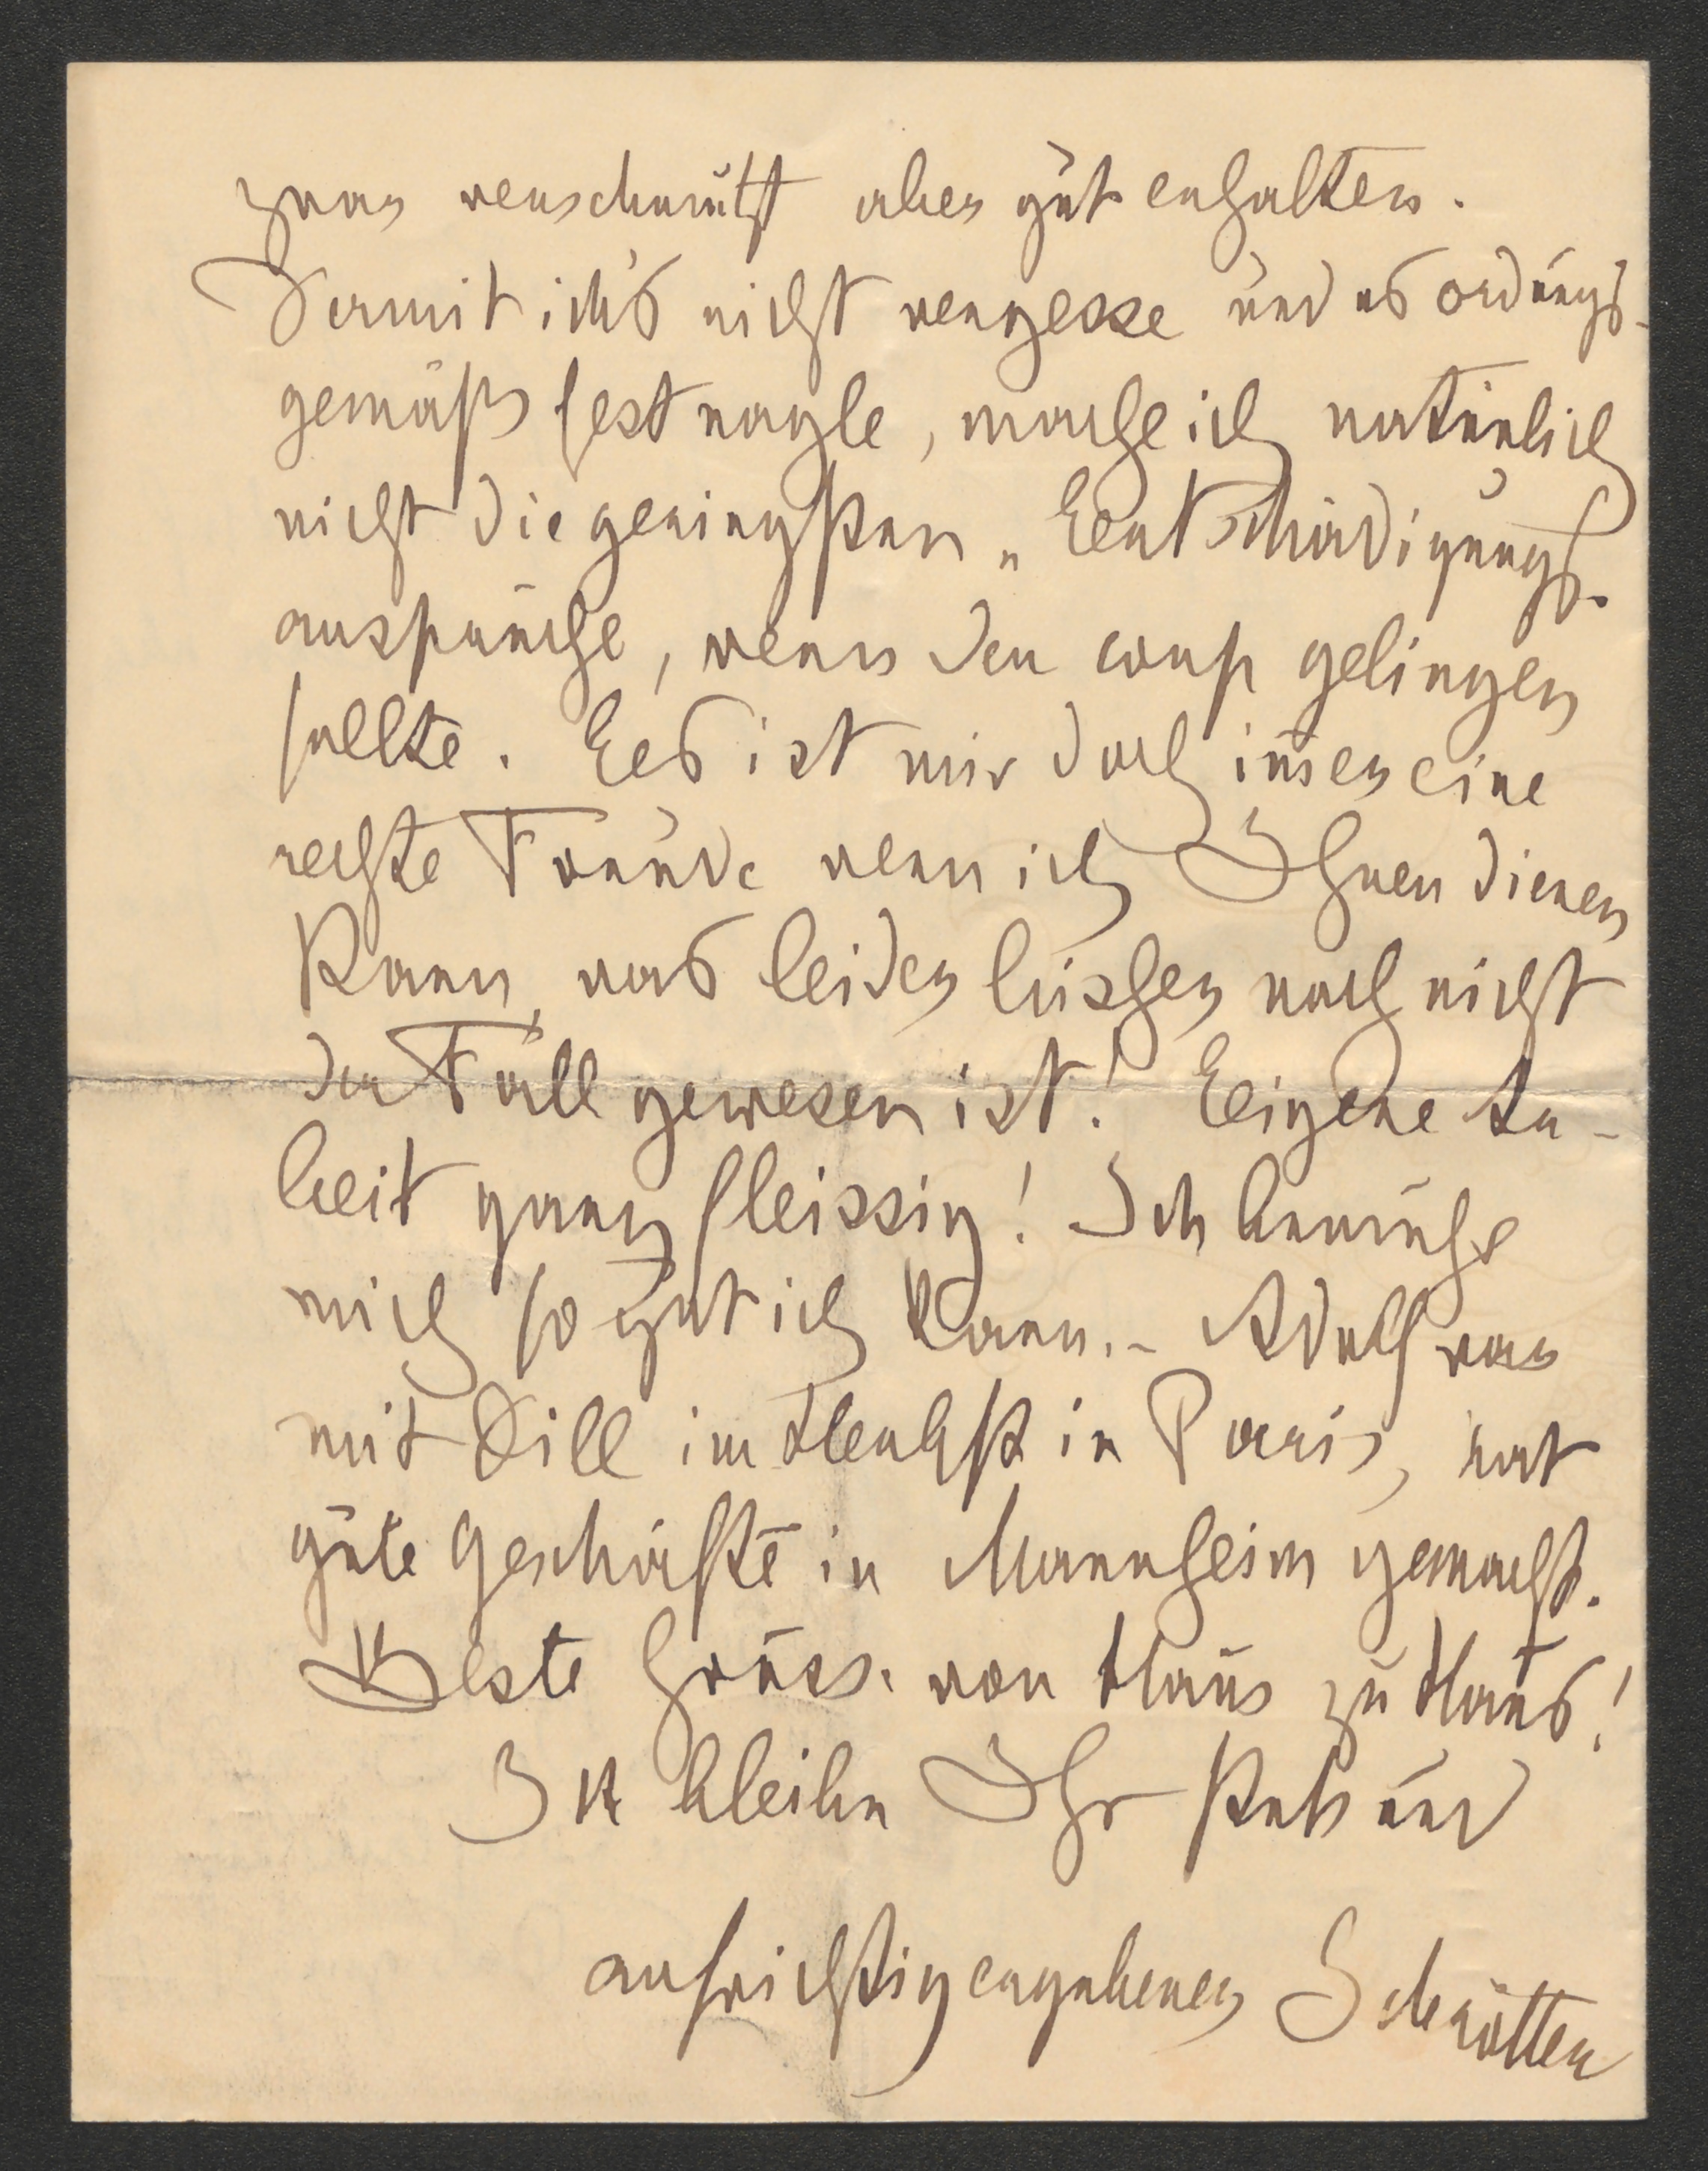 zwar verschmutzt aber gut erhalten.
Damit ich's nicht vergesse und es ordnungs-
gemäß festnagle, mache ich natürlich
nicht die geringsten „Entschädigungs-
ansprüche, wenn der coup gelingen
sollte. Es ist mir doch im̅er eine
rechte Freude wenn ich Ihnen dienen
kann, was leider bisher noch nicht
der Fall gewesen ist! Eigene Ar-
beit ganz fleissig! Ich bemühe
mich so gut ich kann. – Adolf war
mit Dill im Herbst in Paris, hat
gute Geschäfte in Mannheim gemacht.
Beste Grüsse von Haus zu Haus!
Ich bleibe Ihr stets und
aufrichtig ergebener Schrötter